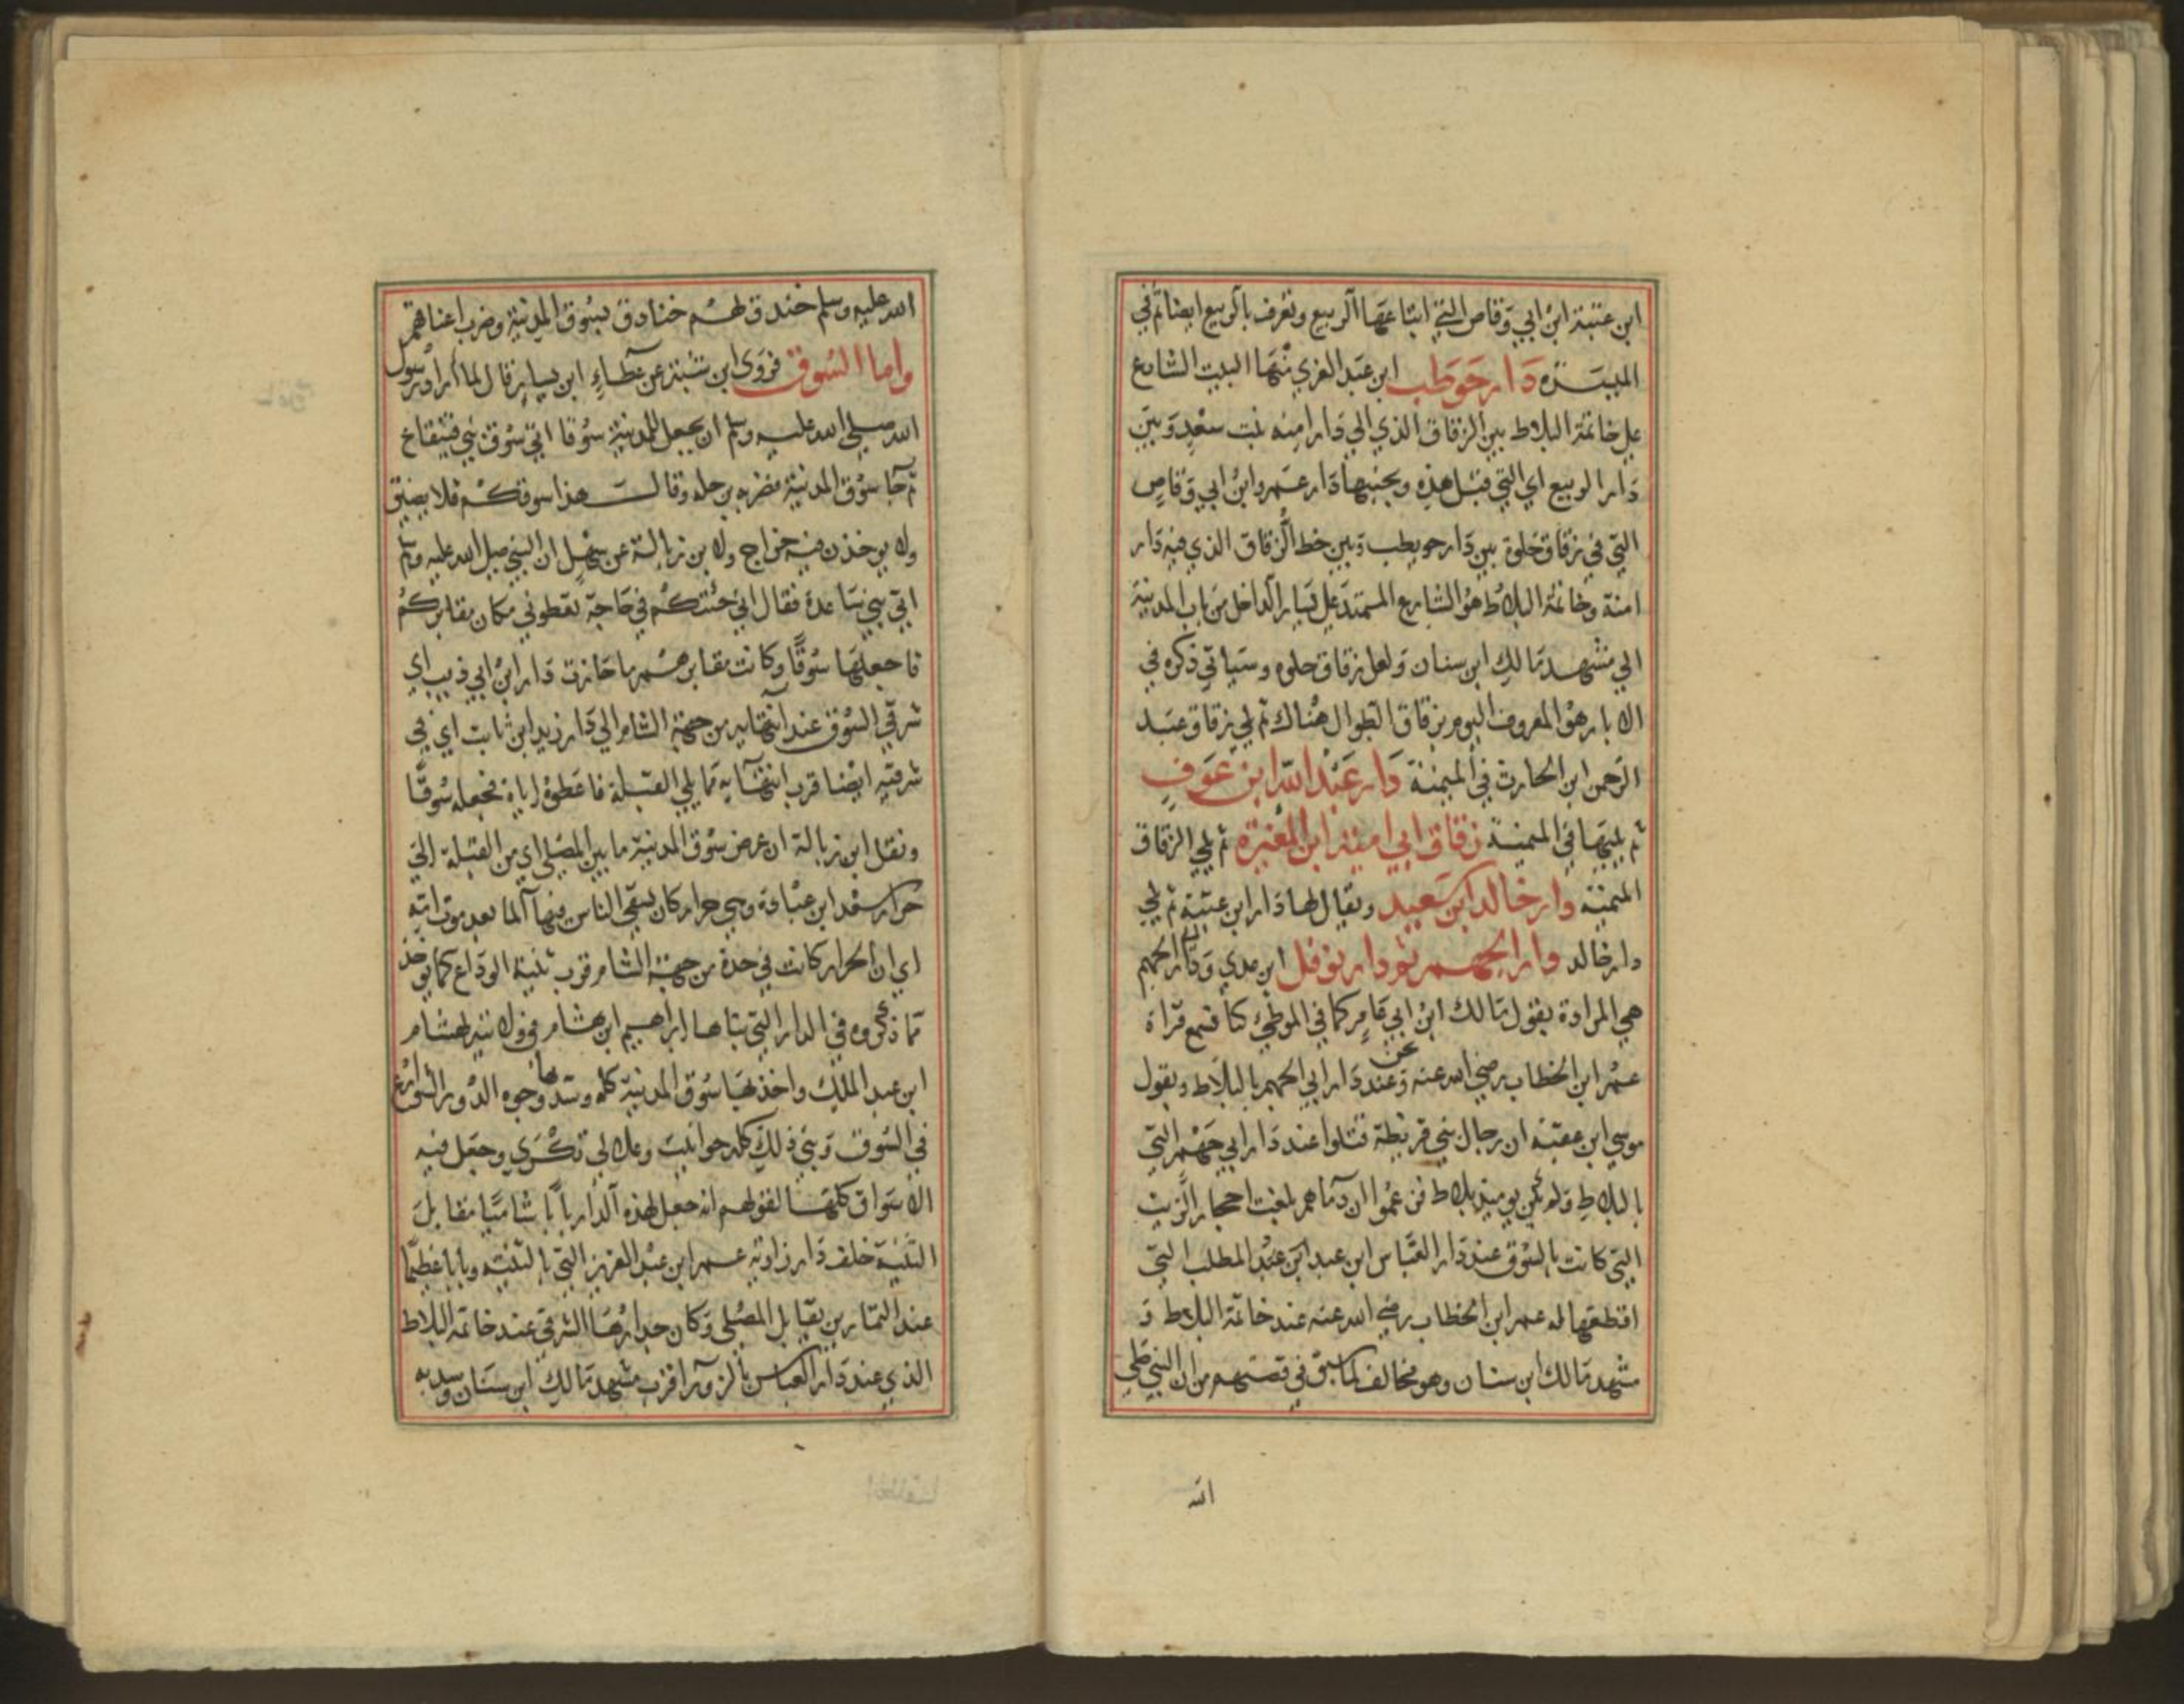 ابن عتبة ابن ابي وقاص التي ابتاعها الربيع وتعرف بالربيع ايضا ثم في
الميسرة دار حوطب ابن عبد العزي منها البيت الشارع
علي خاتمة البلاط بين الزقاق الذي الي دار امنه بنت سعد وبين
دار الربيع اي التي قبل هذه وبجنبها دار عمرو ابن ابي وقاص
التي في زقاق خلوة بين دار حويطب وبين خط الزقاق الذي فيه دار
امنة وخاتمة البلاط هو الشارع الممتد علي يسار الداخل من باب المدينة
الي مشهد مالك ابن سنان ولعل زقاق حلوه وسياتي ذكره في
الابار هو المعروف اليوم بزقاق الطوال هناك ثم يلي زقاق عبد
الرحمن ابن الحارث في الميمنة دار عبد الله ابن عوف
ثم يليها في الميمنة زقاق ابي امية ابن المغيرة ثم يلي الزقاق
الميمنة دار خالد ابن سعيد ويقال لها دار ابن عتبة ثم يلي
دار خالد دار ابي الجهم ثم دار نوفل ابن عدي ودار الجهم
هي المرادة بقول مالك ابن ابي عامر كما في الموطئ كنا نسمع قراة
عمر ابن الخطاب رضي الله عنه وعند دار ابي الجهم بالبلاط وبقول
موسي ابن عقبة ان رجال بني قريظة قتلوا عند دار ابي جهم التي
بالبلاط ولم يكن يوميذ بلاط فزعموا ان دماهم بلغت احجار الزيت
التي كانت بالسوق عند دار العباس ابن عبد ابن عبد المطلب التي
اقطعها له عمر ابن الخطاب رضي الله عنه عند خاتمة البلاط و
مشهد مالك ابن سنان وهو مخالف لما سبق في قصتهم من ان النبي صلي
الله
الله عليه وسلم خندق لهم خنادق بسوق المدينة وضرب اعناقهم
واما السوق فروي ابن شبة عن عطاء ابن يسار قال لما اراد رسول
الله صلي الله عليه وسلم ان يجعل للمدينة سوقا اتي سوق بني قينقاع
ثم جا سوق المدينة فضربه برجله وقال هذا سوقكم فلا يضيق
ولا يوخذن فيه خراج ولابن زبالة عن سهل ان النبي صلي الله عليه وسلم
اتي بني ساعدة فقال اني جئتكم في حاجة تعطوني مكان مقابركم
فاجعلها سوقًا وكانت مقابرهم ما حازت دار ابن ابي ذيب اي
شرقي السوق عند انتهايه من جهة الشام الي دار زيد ابن ثابت اي في
شرقيه ايضا قرب انتهايه مما يلي القبلة فاعطوه اياه فجعله سوقًا
ونقل ابن زبالة ان عرض سوق المدينة ما بين المصلي اي من القبلة الي
جرار سعد ابن عبادة وهي جرار كان يسقي الناس فيها الما بعد موت امه
اي ان الجرار كانت في حدة من جهة الشام قرب ثنية الوداع كما يوخذ
مما ذكروه في الدار التي بناها ابراهيم ابن هشام في ولايته لهشام
ابن عبد الملك واخذ بها سوق المدينة كله وسد بها وجوه الدور الشوارع
في السوق وبني ذلك كله حوانيت وعلالي تكري وجعل فيه
الاسواق كلها لقولهم انه جعل لهذه الدار بابًا شاميًا مقابل
الثنية خلف دار زاوية عمر ابن عبد العزيز التي بالثنية وبابا عظيمًا
عند التمارين يقابل المصلي وكان جدارها الشرقي عند خاتمة البلاط
الذي عند دار العباس بالزورا قرب مشهد مالك ابن سنان وسد به